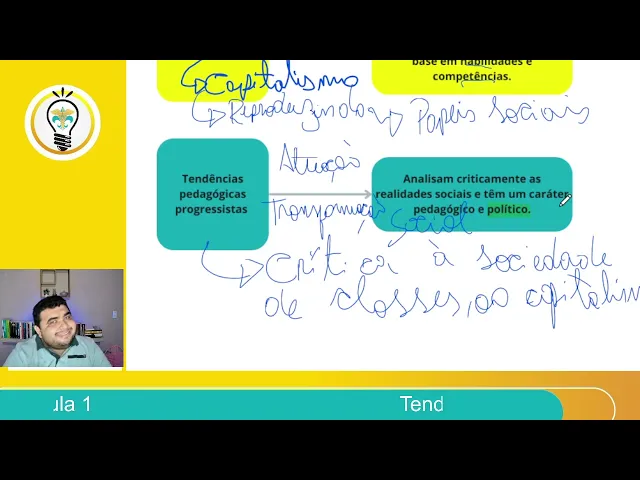 base em habilidades e
competências.
Capitalismo
Papéis sociais
Tendências
pedagógicas
progressistas
Atuação
Transformação
social
Analisam criticamente as
realidades sociais e têm um caráter
pedagógico e político.
Crítica à sociedade
de classes, ao capitalism
ula 1
Tend